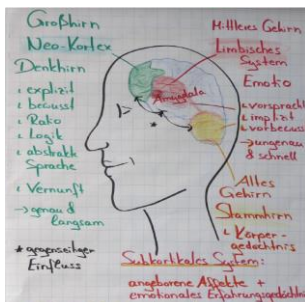 Großhirn
Neo-Kortex
Denkhirn
explizit
bewusst
Ratio
Logik
abstrakte
Sprache
Vernunft
→ genau &
langsam
* gegenseitiger
Einfluss
Mittleres Gehirn
Limbisches
System
Emotio
vorsprachl
implizit
vorbewusst
→ ungenau
& schnell
Amygdala
*
Altes
Gehirn
Stammhirn
Körper-
gedächtnis
Subkortikales System:
angeborene Affekte +
emotionales Erfahrungsgedächtnis